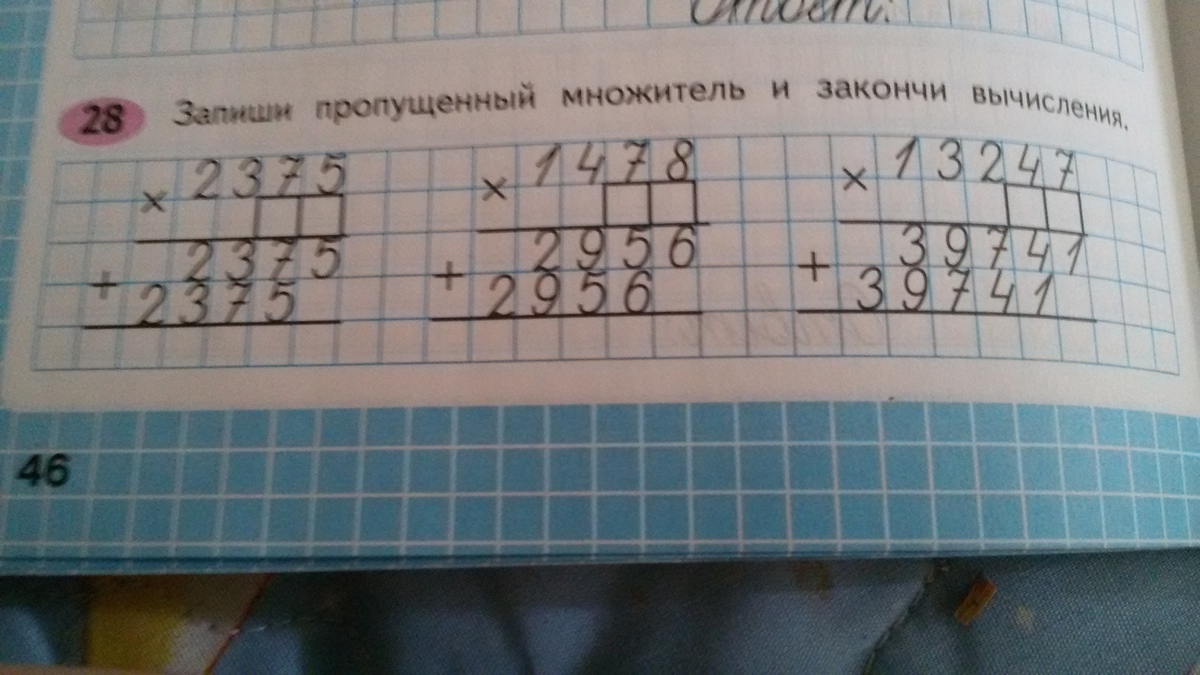 Ответ:
28 Запиши пропущенный множитель и закончи вычисления.
× 2375 × 1478 × 13247
+ 2375 + 2956 + 39741
2375 2956 39741
46